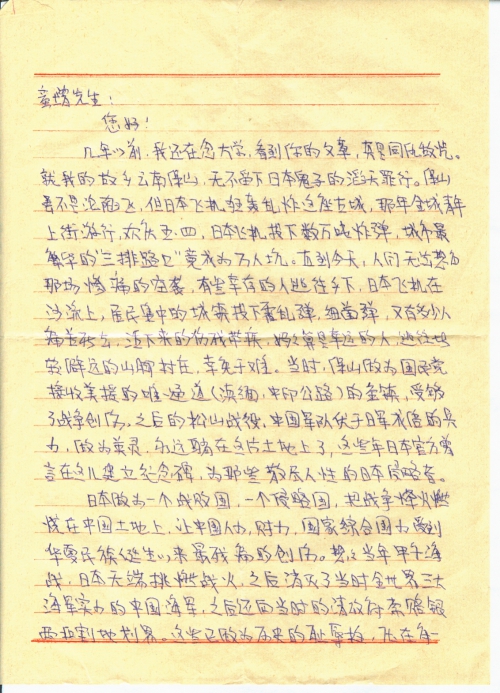 童增先生：
您好！
几年以前，我还在念大学，看到你的文章，真是同仇敌忾。
就我的故乡云南保山，无不留下日本鬼子的滔天罪行。保山
曾不是沦陷区，但日本飞机狂轰乱炸这座古城，那年全城青年
上街游行，欢庆五·四，日本飞机投下数万吨炸弹，城市最
繁华的"三排路口"竟成为万人坑。直到今天，人们无法忘为
那场惨痛的空袭，本当幸存的人逃往乡下，日本飞机在
河流上，居民集中的城寨投下霍乱弹，细菌弹，又有多少人
痛苦死去，活下来的伤残带疾，好之算是幸运的人，逃往
较僻远的山脚村庄，幸免于难。当时，保山做为国民党
接收美援的唯一通道（滇缅，中印公路）的金镇，受够
了战争创伤，之后的松山战役，中国军队伏于日军威信的兵
力，做为英灵，永远留在这片土地上了，这些年日本官方要
言在这儿建立纪念碑，为那些散尽人性的日本侵略者。
日本做为一个战败国，一个侵略国，把战争烽火燃
烧在中国土地上，让中国人力，财力，国家综合国力受到
华夏民族诞生以来最残痛的创伤。想之当年甲午海
战，日本无端挑燃战火，之后消灭了当时全世界三大
海军实力的中国海军，之后还向当时的清政府索赔银
两和割地划界。这些已做为历史的耻辱柱，